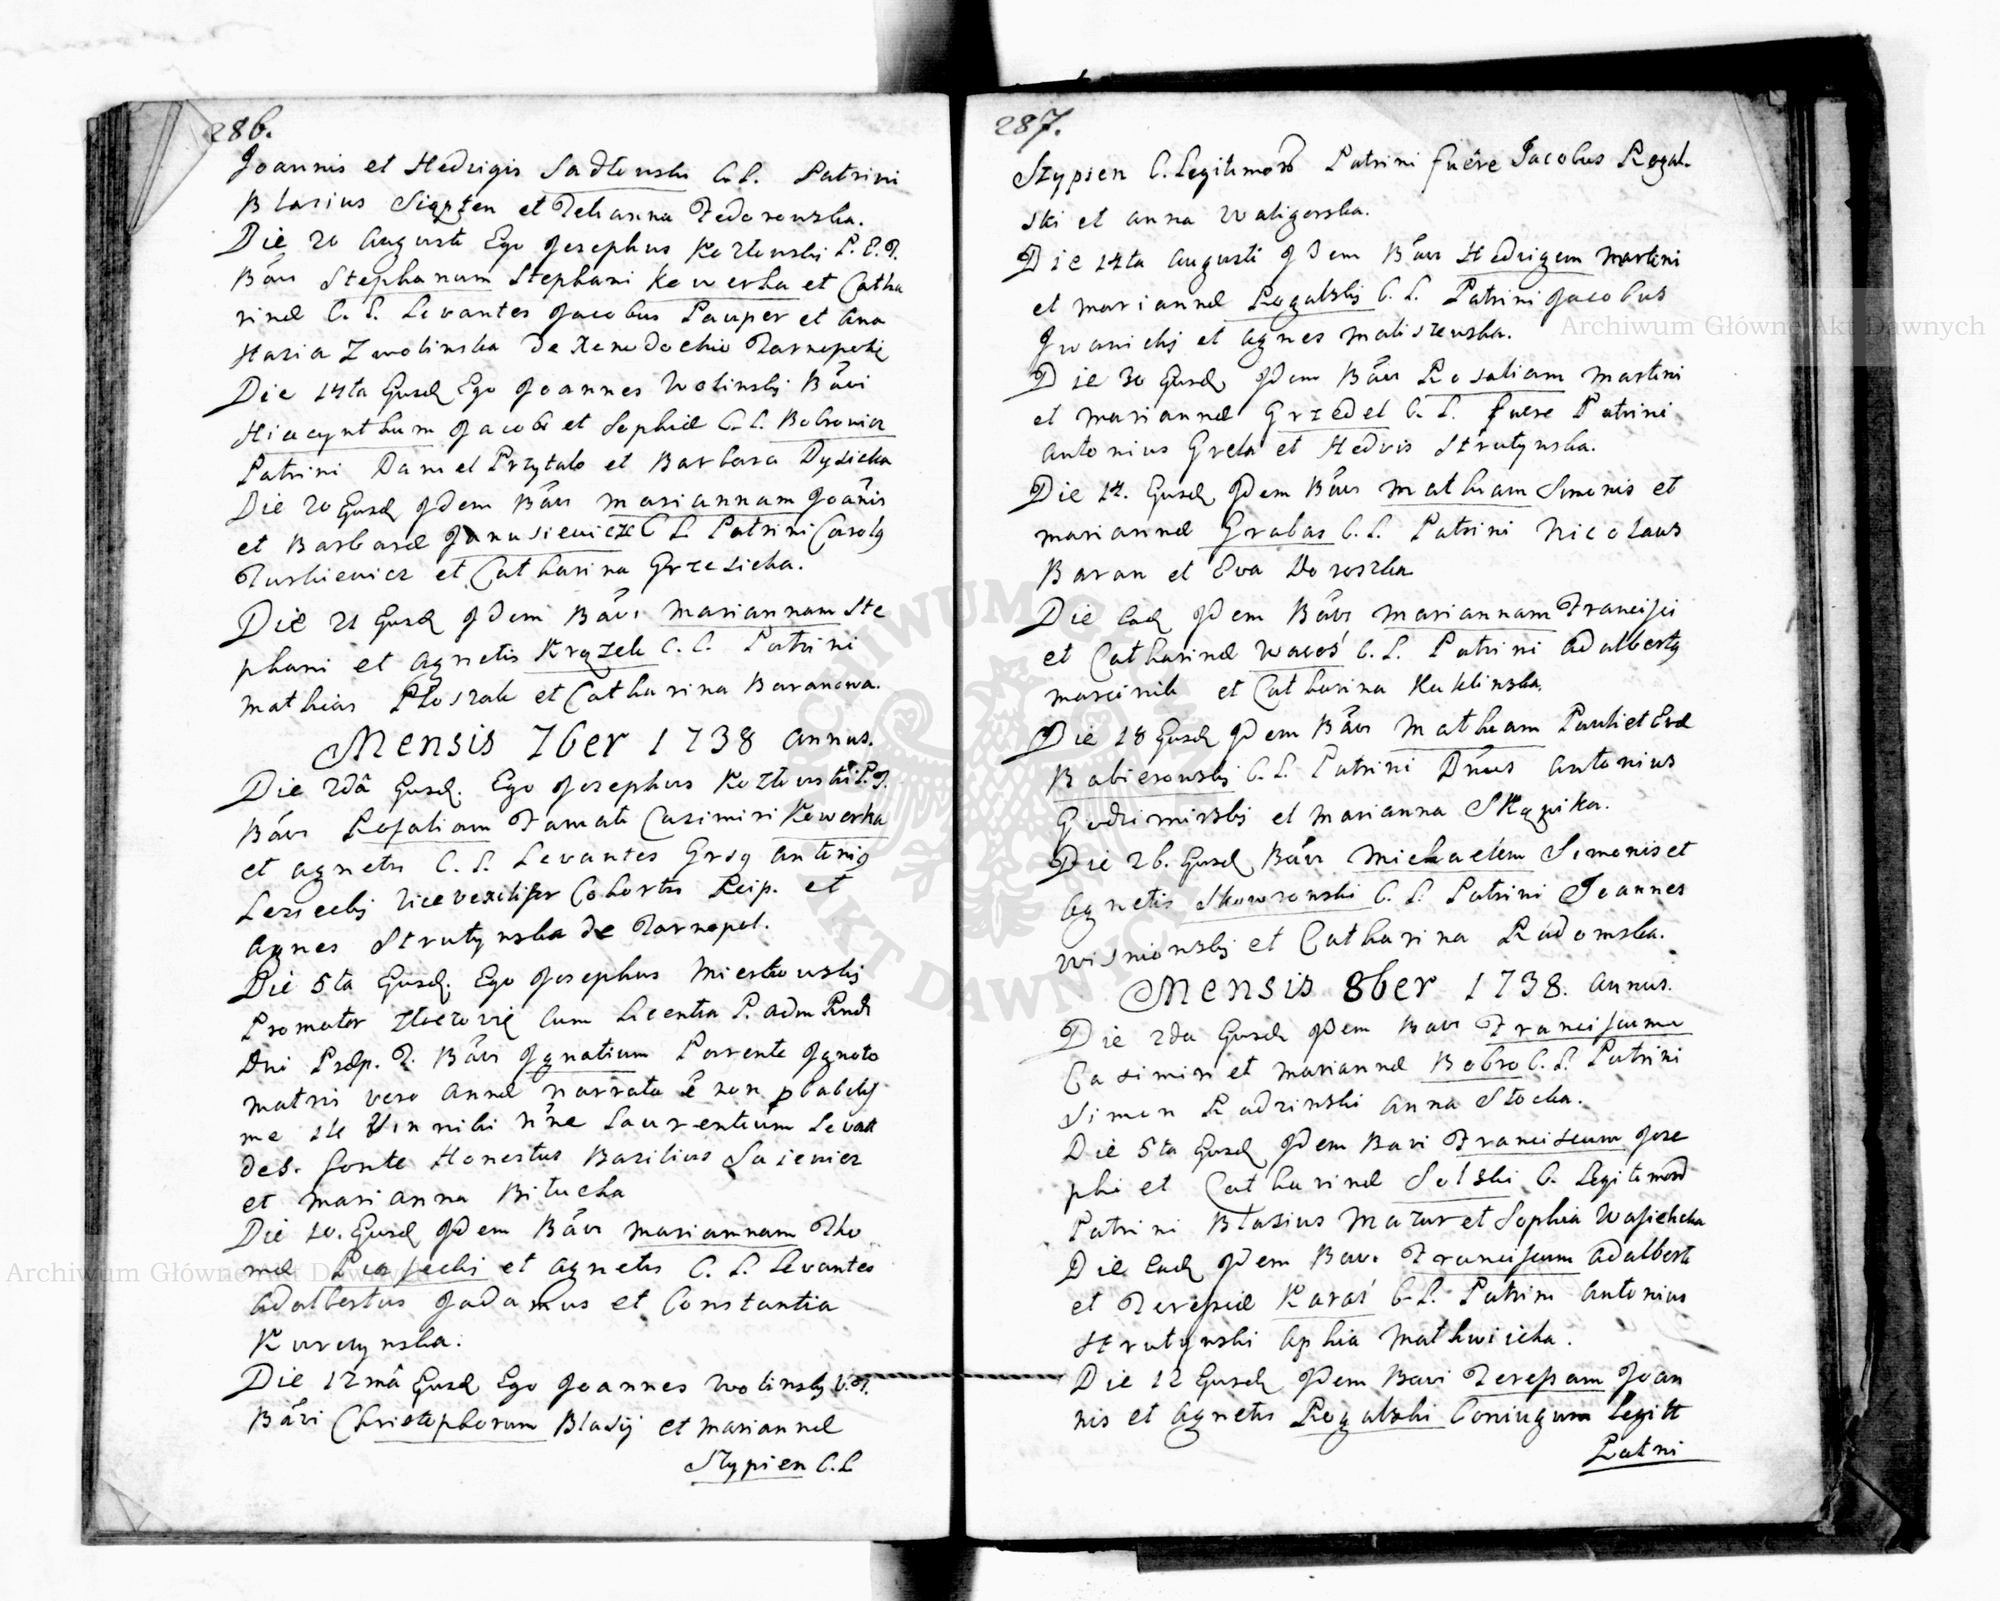 286.
Joannis et Hedvigis Sadłowski C.L. Patrini
Blasius et Tehanna Fedorowska.
Die 20 Augusti Ego Josephus Kozłowski P.E.T.
Bavi Stephanum Stephani Kewerka et Catha
rinæ C. L. Levantes Jacobus Pauper et Ana
stazia Zwolinska de Xenodochio Tarnopoli
Die 14ta Ejusd Ego Joannes Wolinski Bavi
Hiacynthum Jacobi et Sophiæ C.L. Bobrowicz
Patrini Daniel Przytało et Barbara Dysicka
Die 20 Ejusd Idem Bavi Mariannam Joanis
et Barbaræ Janusiewicze C L Patrini Carolg
Turkiewicz et Catharina Grzesicka.
Die 21 Ejusd Idem Bavi Mariannam Ste
phani et Agnetis Krązek C. L. Patrini
Mathias Płoszak et Catharina Baranowa.
Mensis 7ber 1738 Annus.
Die 2dâ Ejusd. Ego Josephus Kozłowski P.T.
Bavi Rosaliam Famati Casimiri Kewerka
et Agnetis C. L. Levantes Antonig
Lezieckij Vicevexilifer Cohortis Reip. et
Agnes Strutynska de Tarnopol.
Die 5ta Ejusd. Ego Josephus Miestkowskij
Promotor cum Licentia P. Adm Rndi
Dni Præp. T. Bavi Ignatium Parente Ignoto
Matris vero Annæ narrata ē non pbabily
me mihi nne Laurentium Levatt
de S. fonte Honestus Basilius Saiewicz
et Marianna Bitucka
Die 10. Ejusd Idem Bavi Mariannam Tho
mæ Piąsecki et Agnetis C. L. Levantes
Adalbertus Jadamus et Constantia
Kurczynska.
Die 12mâ Ejusd Ego Joannes Wolinskij V.T.
Bavi Christophorum Blasij et Mariannæ
Stypien C.L
287.
Stypien C. Legitimorū Patrini fuêre Jacobus Rogal.
ski et Anna Waligorska.
Die 14ta Augusti Idem Bavi Hedvigem Martini
et Mariannæ Rogalskij C. L. Patrini Jacobus
Iwanickij et Agnes Maliszewska.
Die 30 Ejusd Idem Bavi Rosaliam Martini
et Mariannæ Grzedel C. L. fuere Patrini
Antonius Grela et Hedvis Strutynska.
Die 14. Ejusd Idem Bavi Mathiam Simonis et
Mariannæ Grabas C. L. Patrini Nicolaus
Baran et Eva Doroszka
Die Ead Idem Bavi Mariannam Francisci
et Catharinæ Wacoś C. L. Patrini Adalbertg
Marcinik et Catharina Kuklinska.
Die 18 Ejusd Idem Bavi Mathiam Pauli et Evæ
Babierowskij C. L. Patrini Dnus Antonius
Godzimirskij et Marianna Skąpska.
Die 26. Ejusd Bavi Michaelem Simonis et
Agnetis Skowronski C. L. Patrini Joannes
Wisniowskij et Catharina Radomska.
Mensis 8ber 1738. Annus.
Die 2da Ejusd Idem Bavi Franciscum
Casimiri et Mariannæ Bobro C. L. Patrini
Simon Radzinski Anna Stocka.
Die 5ta Ejusd Idem Bavi Franciscum Jose
phi et Catharinæ Solski C. Legitimorū
Patrini Blasius Mazur et Sophia Wasicka
Die Ead Idem Bavi Franciscum Adalberti
et Teresiæ Karaś C. L. Patrini Antonius
Strutynski Mathwiicka.
Die 12 Ejusd Idem Bavi Teresiam Joan
nis et Agnetis Rogalski Coniugum legitt
Patrini
Archiwum Główne Akt Dawnych
Archiwum Główne Akt Dawnych
ARCHIWUM GŁÓWNE AKT DAWNYCH